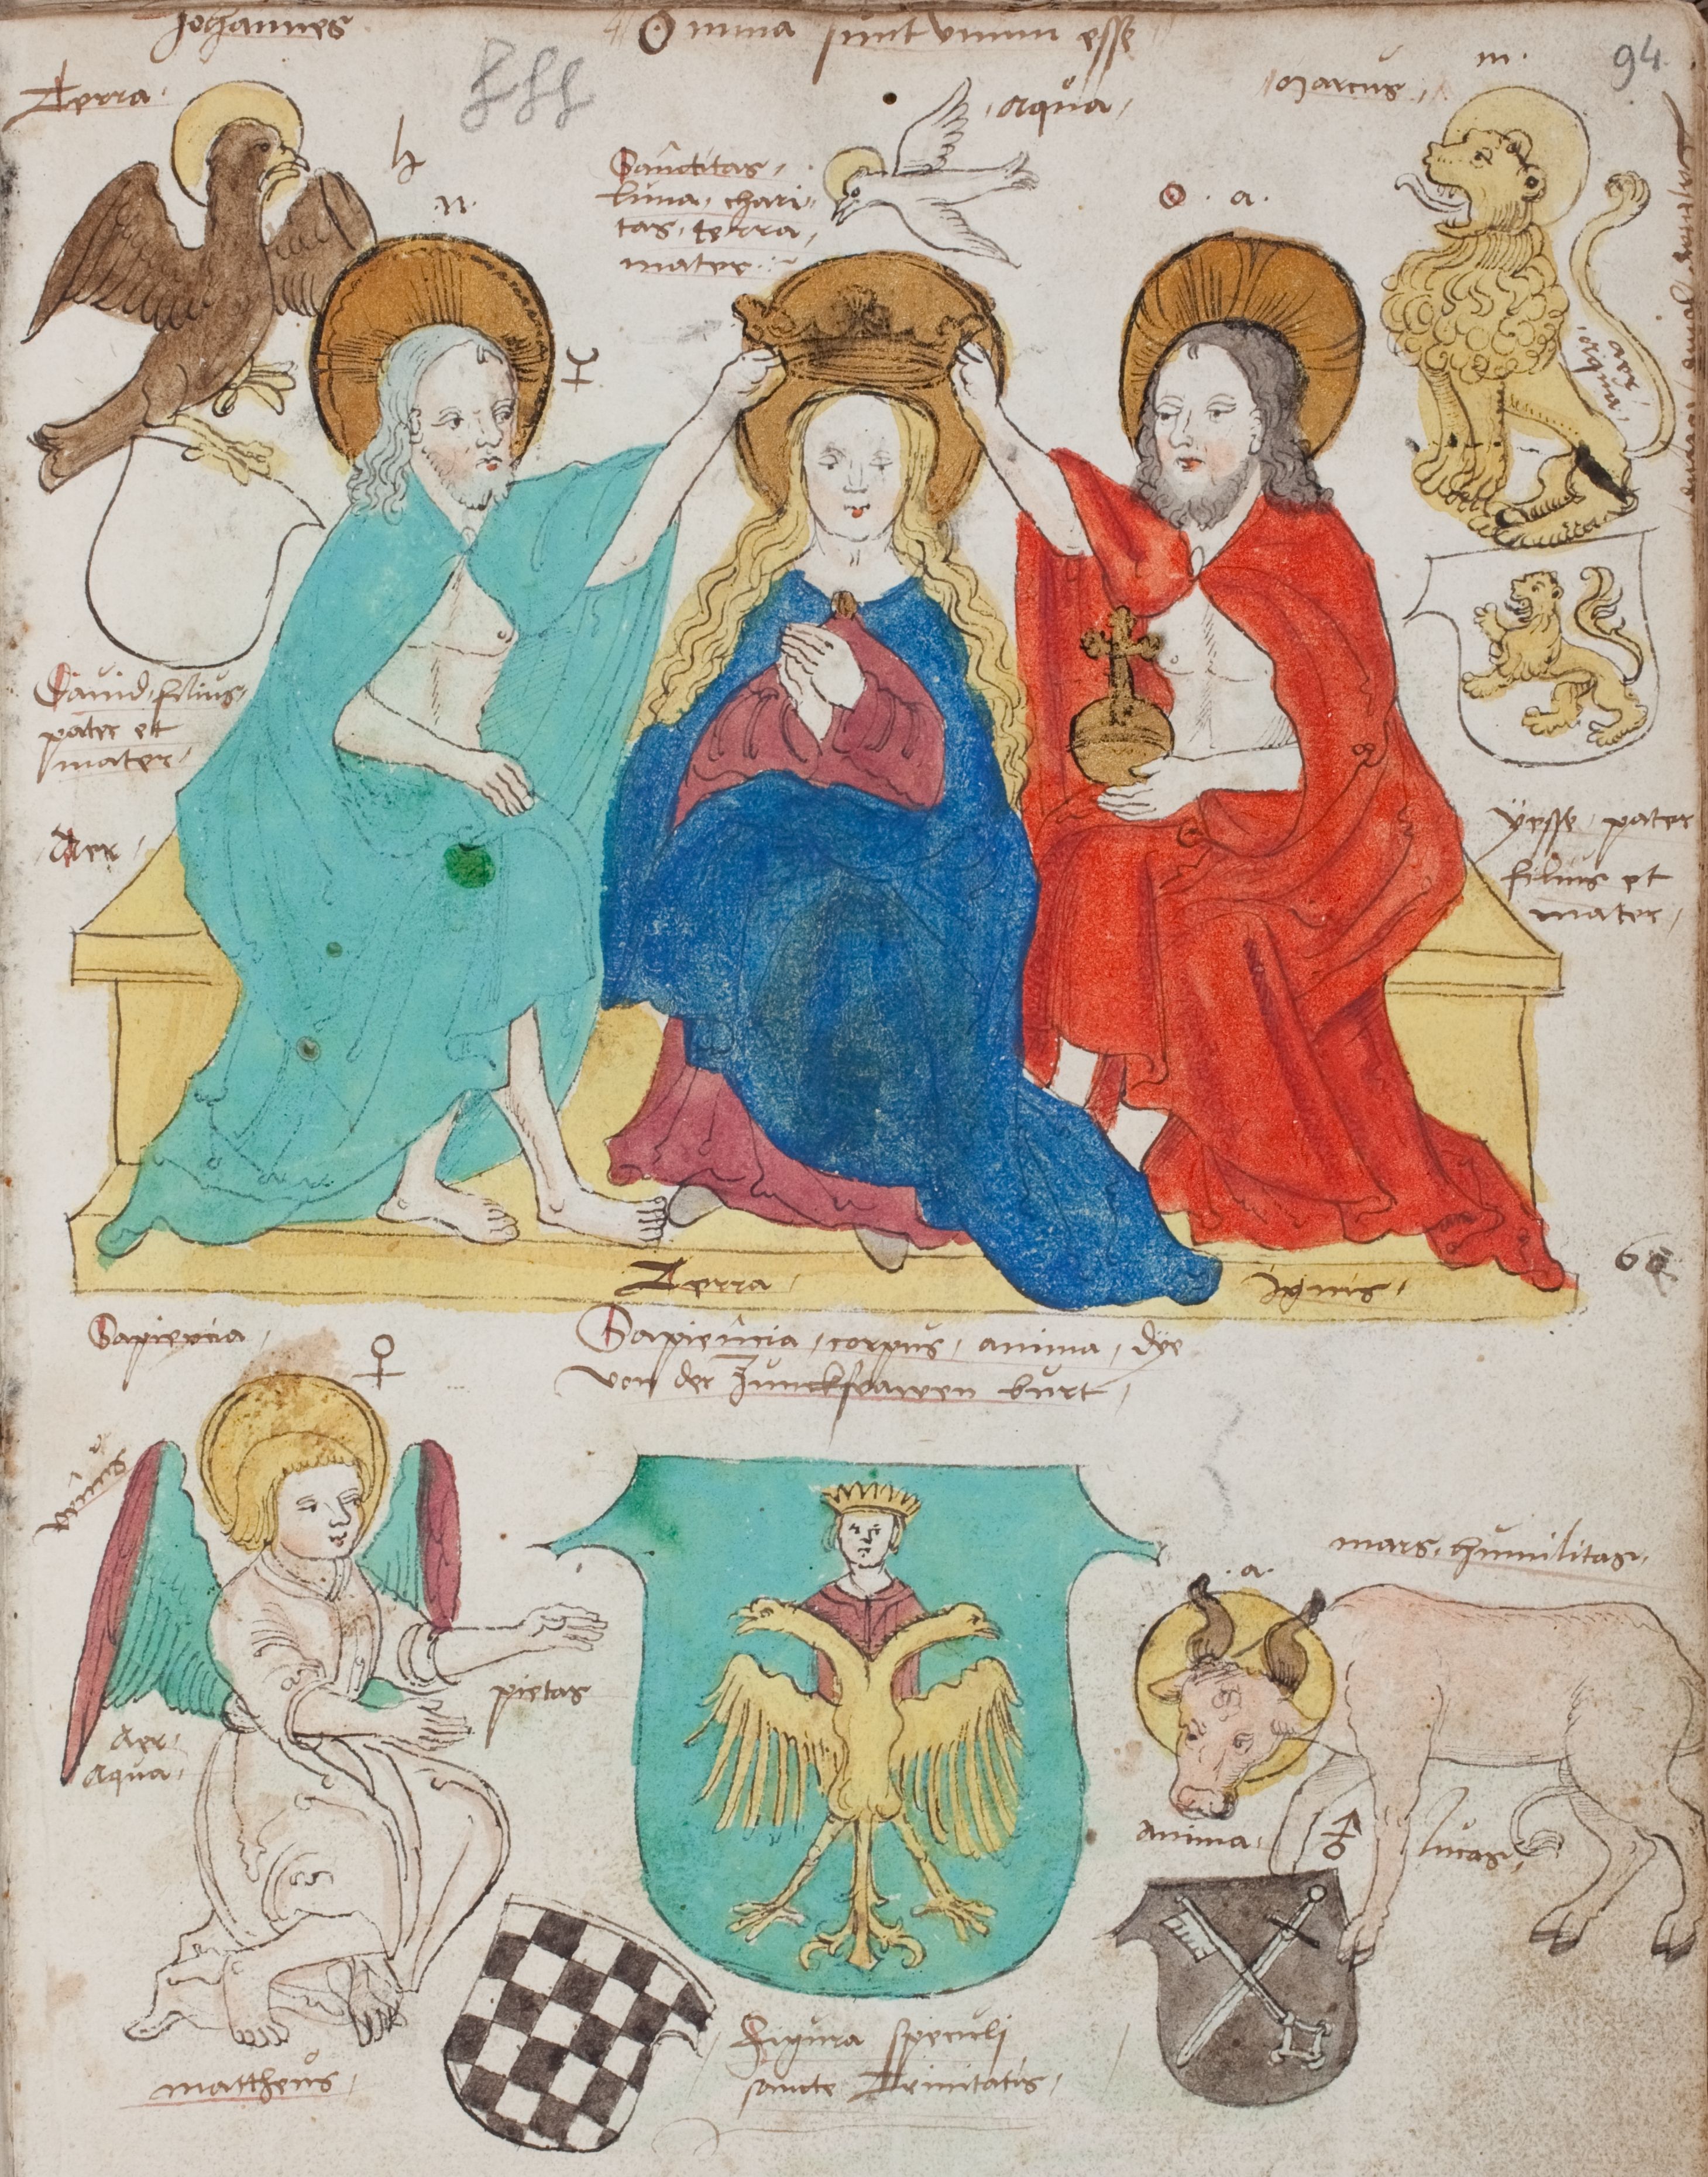 Johannes
Omnia sunt unum esse
94
Terra.
Aqua,
Marcus,
m.
♄
n.
Sanctitas,
luna, chari
tas, terra,
mater
☉ . a.
☿
aer
aqua,
David, filius,
pater et
mater,
Aer,
Yesse, pater
filius et
mater,
Terra,
Ignis,
Sapiencia,
♀
Sapiencia, corpus, anima, dye
von der Junckfrawen burt,
venus
mars, humilitas,
. a.
pietas
Aer
Aqua,
anima,
♂
lucas,
mattheus,
Figura speculi
sancte Trinitatis,